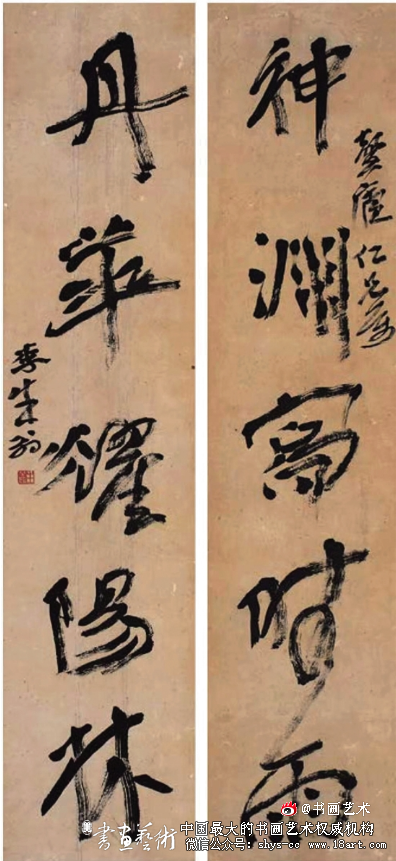 神淵寫時雨
仁兄屬
丹華燿陽林
李生翁
@书画艺术
書畫藝術
中国最大的书画艺术权威机构
微信公众号：shys-- www.18art.com